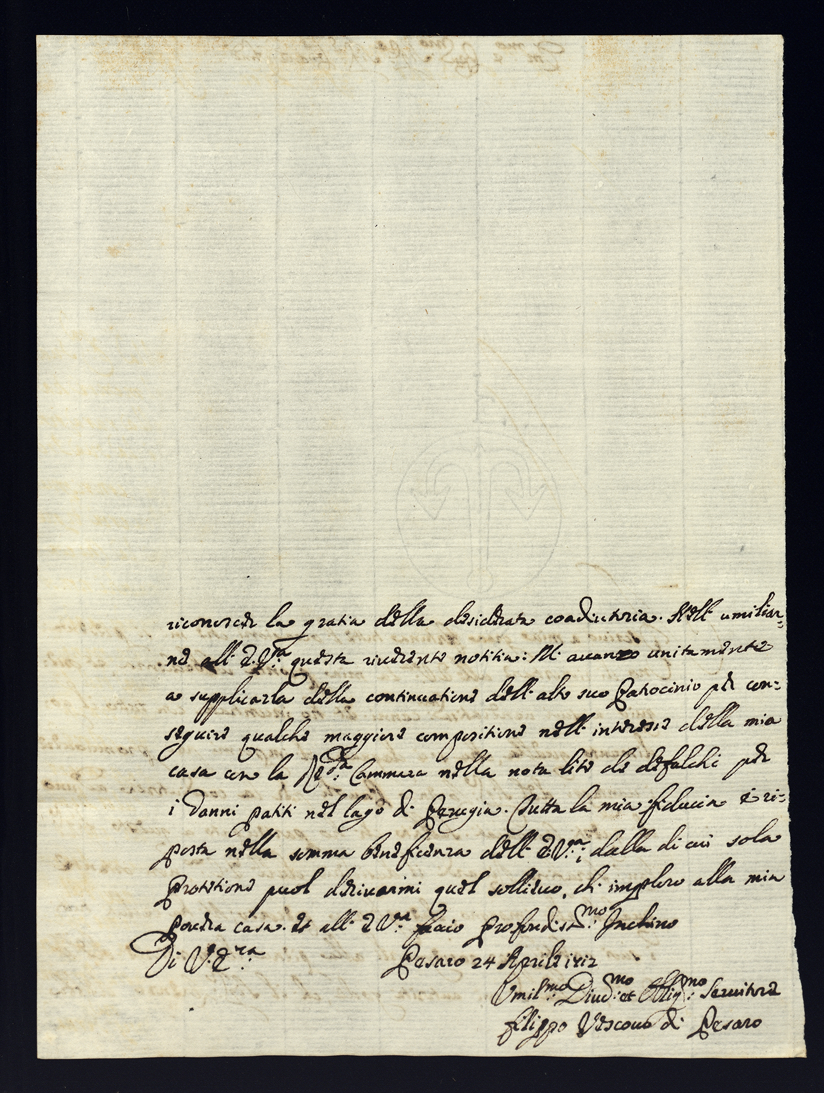 riconoscer la gratia della desiderata coadiutoria. Nell umiliar=
ne all E. V.ra questa riverente notitia: Mi avanzo unitamente
a supplicarla della continuatione dell'alto suo Patrocinio per con=
seguire qualche maggiore compositione nell'interesse della mia
casa con la Re.da Cammera nella nota lite de defalchi per
i danni patiti nel lago di Perugia. Tutta la mia fiducia è ri=
posta nella somma beneficenza dell'E V.ra, dalla di cui sola
Protetione puol derivarmi quel sollievo, ch'imploro alla mia
povera casa. Et all'E V.ra faccio profondiss.mo Inchino
Di V. E.ra Pesaro 24 Aprile 1712
Umil.mo Div.mo et Oblig.mo Servitore
Filippo Vescovo di Pesaro